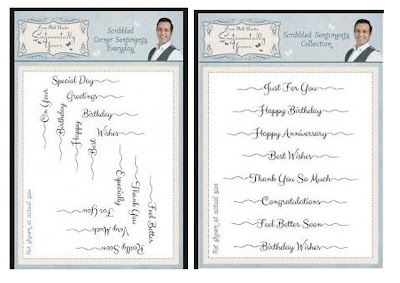 From Phill Martin
Sentimentally Yours
Scribbled
Corner Sentiments
Everyday
Special Day
Greetings
On Your
Birthday
Happy
Wishes
Best
Especially
Thank You
For You
Feel Better
Very Much
Really Soon
Not shown at actual size
From Phill Martin
Sentimentally Yours
Scribbled Sentiments
Collection
Just For You
Happy Birthday
Happy Anniversary
Best Wishes
Thank You So Much
Congratulations
Feel Better Soon
Birthday Wishes
Not shown at actual size